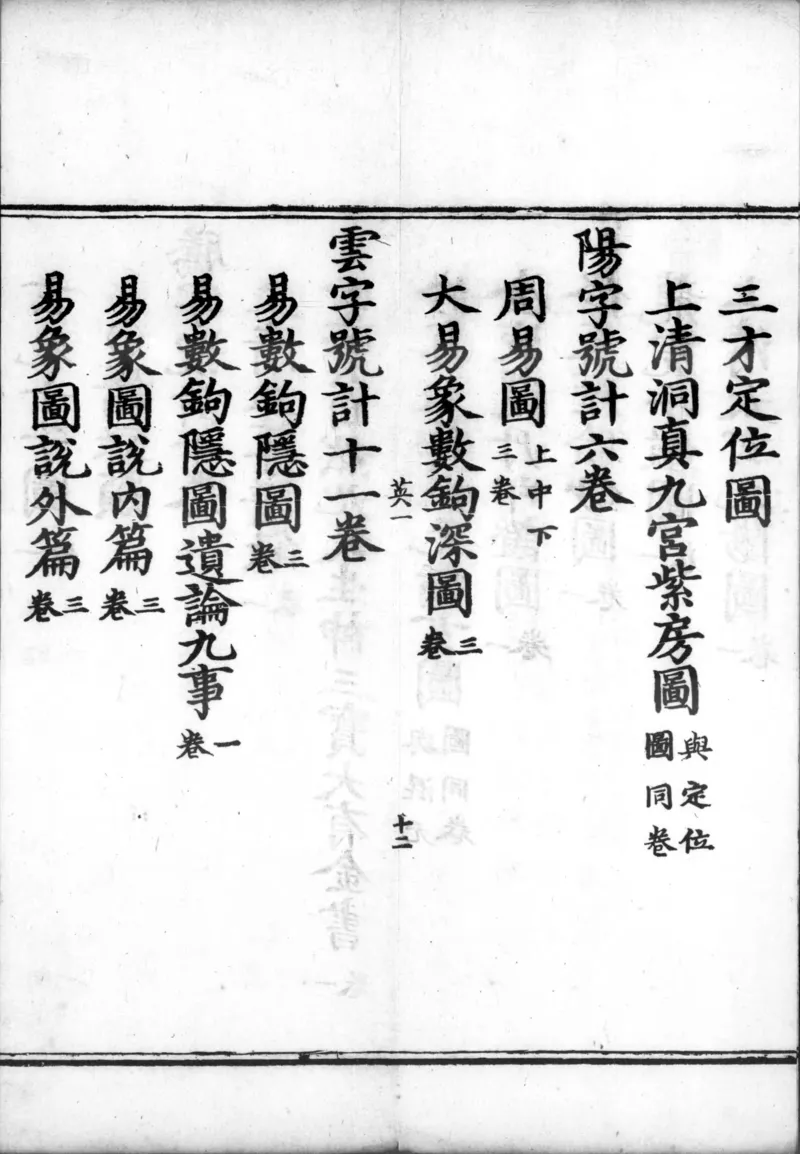 三才定位圖
上清洞真九宮紫房圖 與定位圖同卷
陽字號計六卷
周易圖 上中下三卷
大易象數鉤深圖 三卷
英一 十二
雲字號計十一卷
易數鉤隱圖 三卷
易數鉤隱圖遺論九事 一卷
易象圖說內篇 三卷
易象圖說外篇 三卷